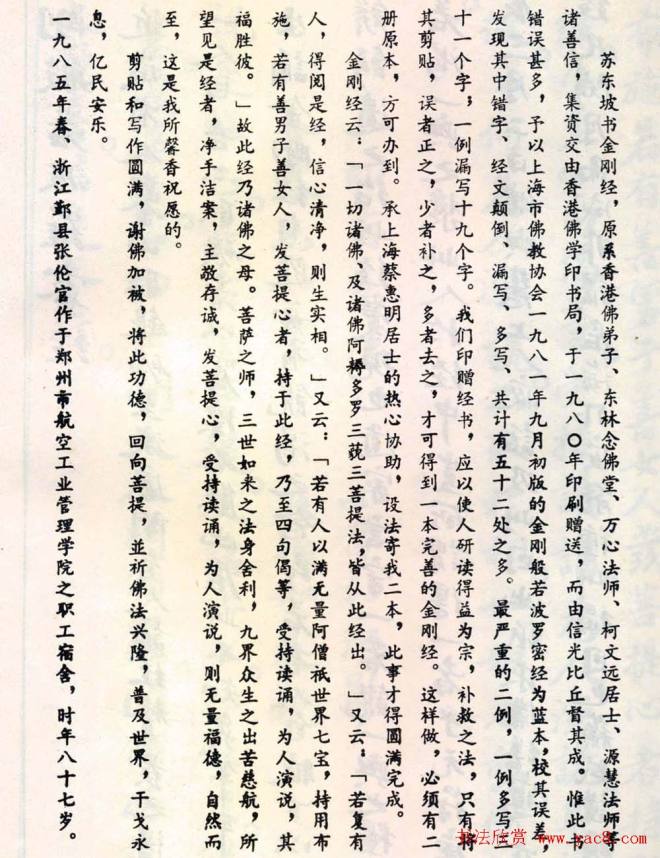 苏东坡书金刚经，原系香港佛弟子、东林念佛堂、万心法师、柯文远居士、源慧法师等
诸善信，集资交由香港佛学印书局，于一九八〇年印刷赠送，而由信光比丘督其成。惟此书
错误甚多，予以上海市佛教协会一九八一年九月初版的金刚般若波罗密经为蓝本，校其误差，
发现其中错字、经文颠倒、漏写、多写、共计有五十二处之多。最严重的二例，一例多写二
十一个字；一例漏写十九个字。我们印赠经书，应以使人研读得益为宗，补救之法，只有将
其剪贴，误者正之，少者补之，多者去之，才可得到一本完善的金刚经。这样做，必须有二
册原本，方可办到。承上海蔡惠明居士的热心协助，设法寄我二本，此事才得圆满完成。
金刚经云：「一切诸佛、及诸佛阿耨多罗三藐三菩提法，皆从此经出。」又云：「若复有
人，得阅是经，信心清净，则生实相。」又云：「若有人以满无量阿僧祇世界七宝，持用布
施，若有善男子善女人，发菩提心者，持于此经，乃至四句偈等，受持读诵，为人演说，其
福胜彼。」故此经乃诸佛之母。菩萨之师，三世如来之法身舍利，九界众生之出苦慈航，所
望见是经者，净手洁案，主敬存诚，发菩提心，受持读诵，为人演说，则无量福德，自然而
至，这是我所馨香祝愿的。
剪贴和写作圆满，谢佛加被，将此功德，回向菩提，並祈佛法兴隆，普及世界，干戈永
息，亿民安乐。
一九八五年春、浙江鄞县张伦官作于郑州市航空工业管理学院之职工宿舍，时年八十七岁。
书法欣赏 www.yac8.com